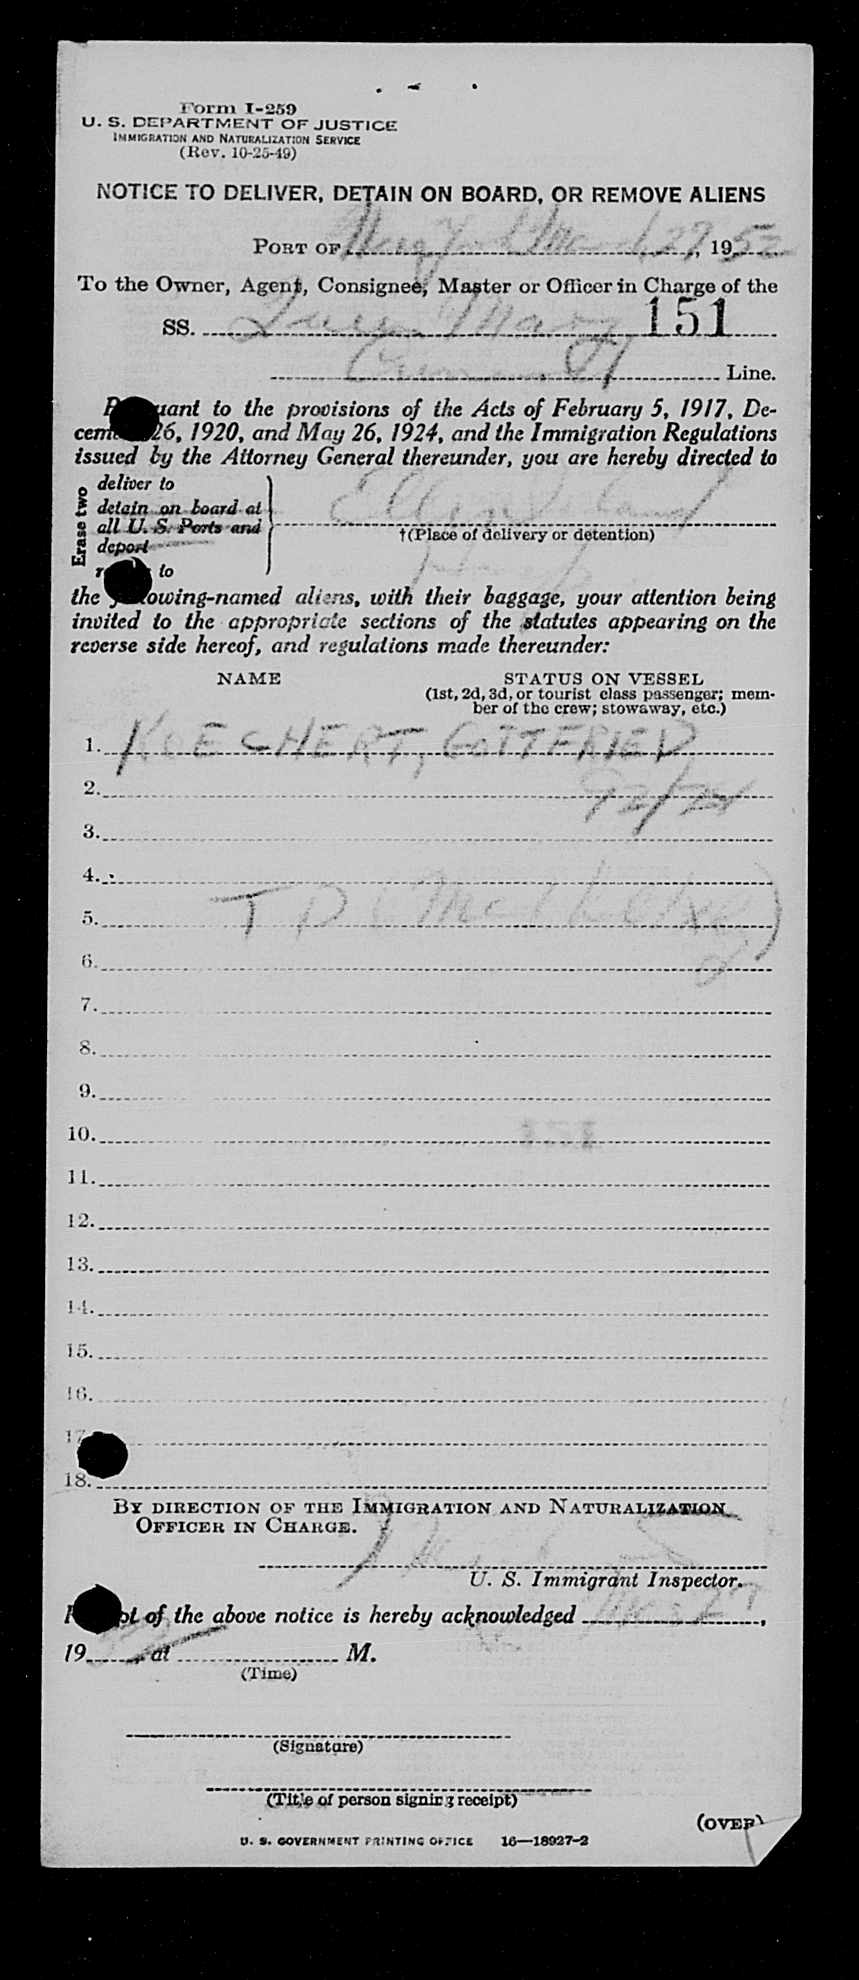 Form I-259
U. S. DEPARTMENT OF JUSTICE
IMMIGRATION AND NATURALIZATION SERVICE
(Rev. 10-25-49)
NOTICE TO DELIVER, DETAIN ON BOARD, OR REMOVE ALIENS
PORT OF New York March 27, 1952
To the Owner, Agent, Consignee, Master or Officer in Charge of the
SS. Queen Mary 151
Cunard Line.
to the provisions of the Acts of February 5, 1917, De-
26, 1920, and May 26, 1924, and the Immigration Regulations
issued by the Attorney General thereunder, you are hereby directed to
Erase two
deliver to
detain on board at
all U. S. Ports and
deport
to
Ellis Island
†(Place of delivery or detention)
the following-named aliens, with their baggage, your attention being
invited to the appropriate sections of the statutes appearing on the
reverse side hereof, and regulations made thereunder:
NAME STATUS ON VESSEL
(1st, 2d, 3d, or tourist class passenger; mem-
ber of the crew; stowaway, etc.)
1. KOECHERT, GOTTFRIED
2.
3.
4.
5. T D
6.
7.
8.
9.
10.
11.
12.
13.
14.
15.
16.
17
18.
BY DIRECTION OF THE IMMIGRATION AND NATURALIZATION
OFFICER IN CHARGE.
U. S. Immigrant Inspector.
of the above notice is hereby acknowledged 27,
19 , at M.
(Time)
(Signature)
(Title of person signing receipt)
(OVER)
U. S. GOVERNMENT PRINTING OFFICE 16—18927-2